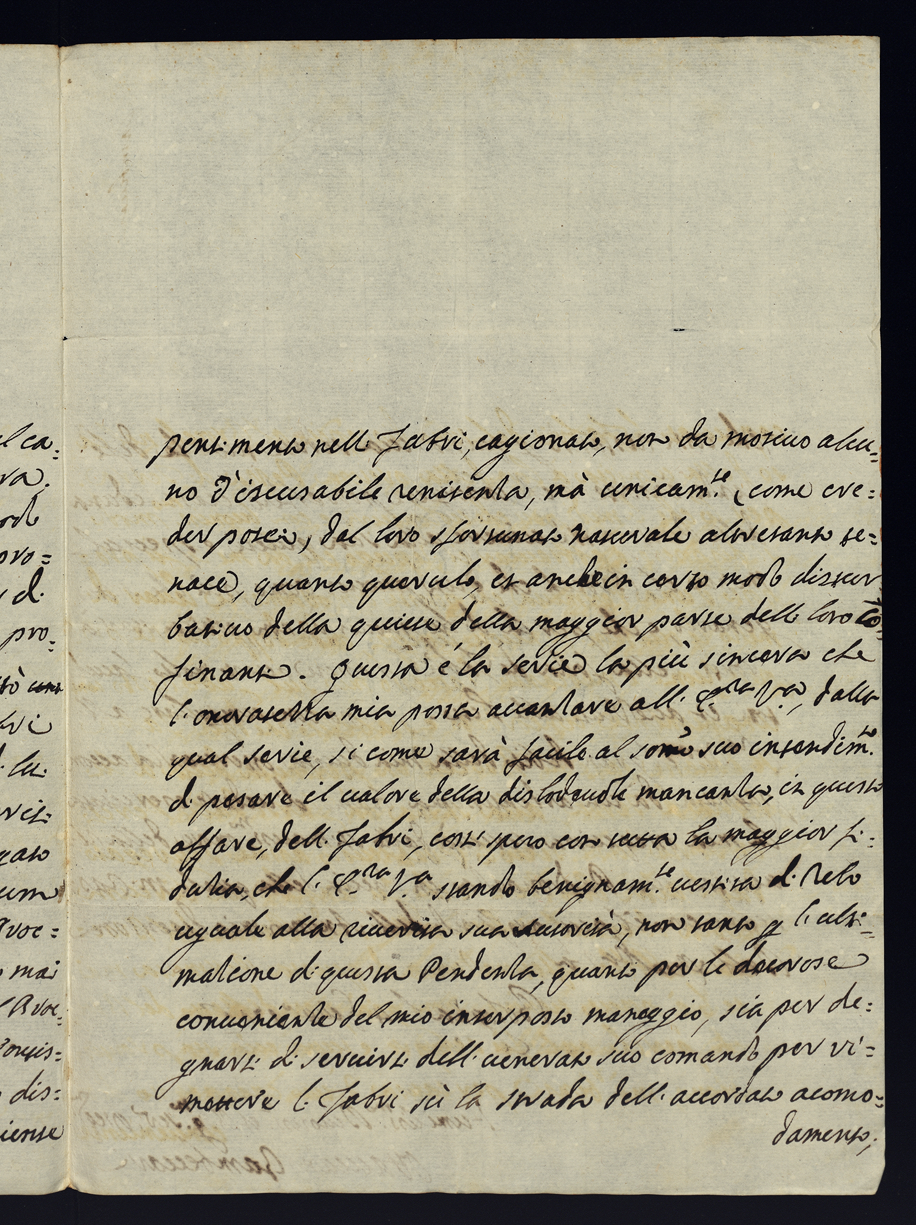 pentimento nelli Fabri, cagionato, non da motivo alcu:
no d'iscusabile renitenza, mà unicam.te (come cre:
der potei), dal loro sfortunato naturale altretanto te:
nace, quanto querulo, et anche in certo modo distur
bativo della quiete della maggior parte delli loro co:
finanti. Questa é la serie la più sincera che
l'onoratezza mia possa accertare all' E.ra V.a, dalla
qual serie, si come sarà facile al som̃o suo intendim.to
di pesare il valore della dislodevole mancanza, in questo
affare, delli Fabri, così spero con tutta la maggior fi:
ducia, che l' E.ra V.a stando benignam.te vestita di zelo
uguale alla riverita sua autorità, non tanto p l'ulti:
matione di questa Pendenza, quanto per le decorose
conveniente del mio interposto maneggio, sia per de:
gnarsi di servirsi dell' venerato suo comando per ri:
mettere li Fabri sù la strada dell' accordato acomo:
damento,
al ca:
va.
pro:
di
pro:
: